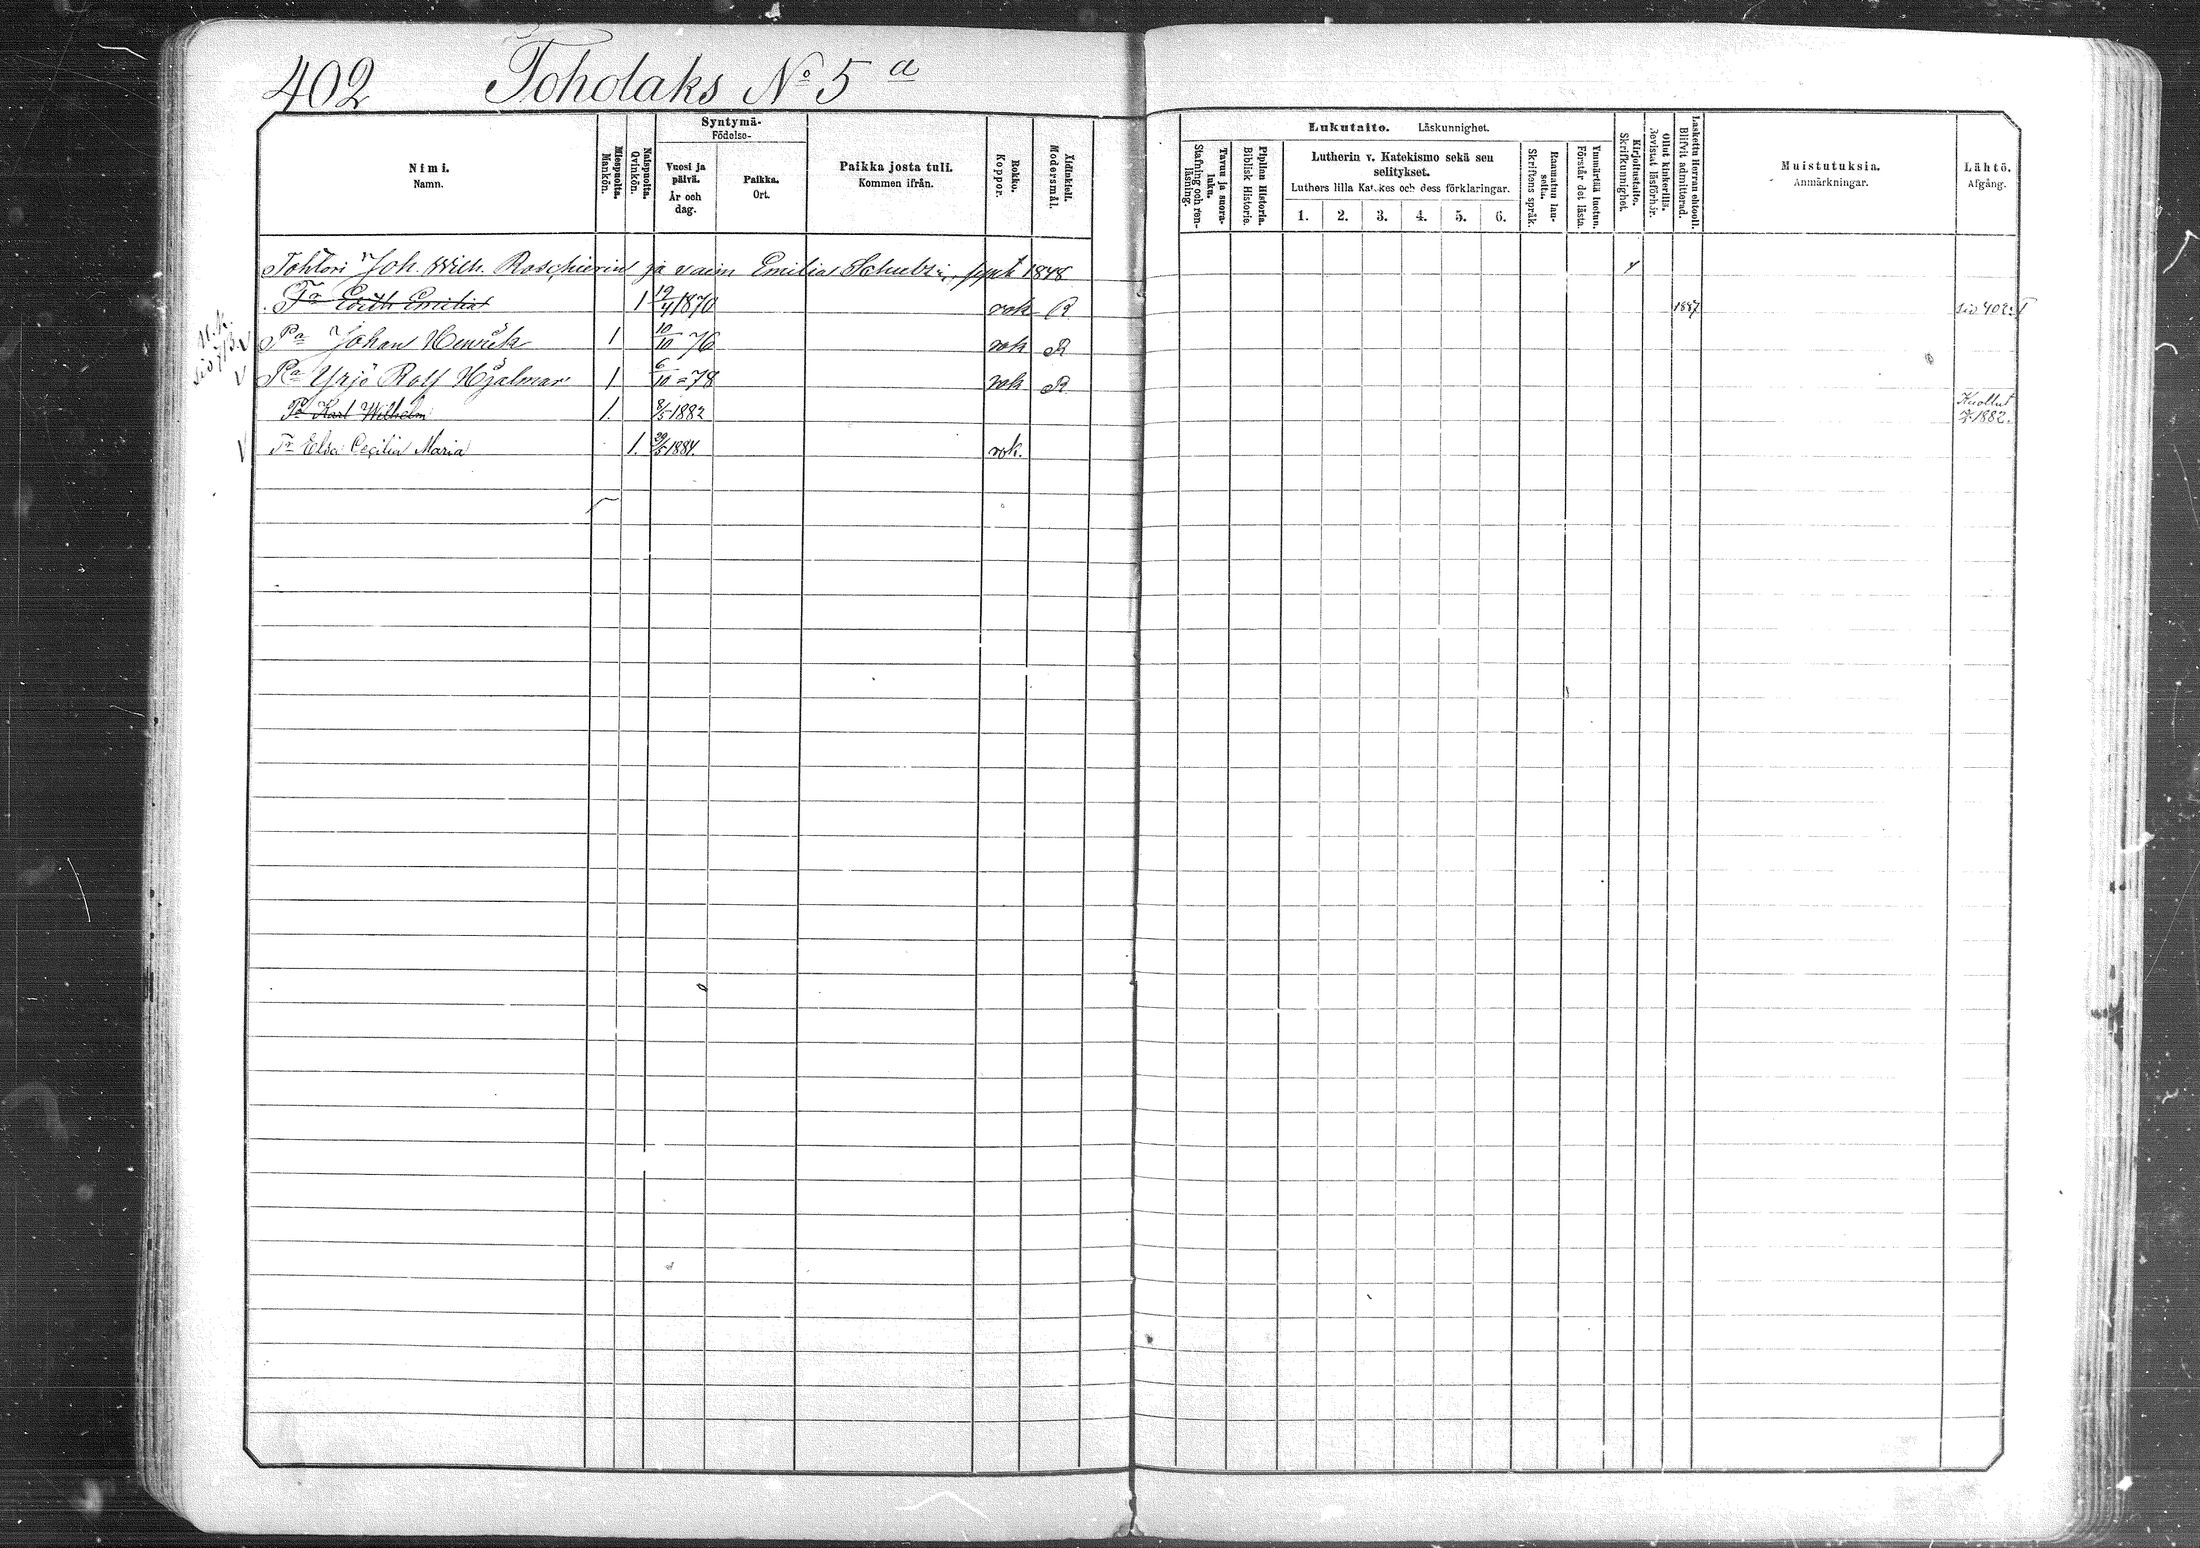 402 Toholaks No 5 a
Nimi.
Namn.
Miespuolta.
Mankön.
Naispuolta.
Qvinkön.
Syntymä-
Födelse-
Vuosi ja
päivä.
År och
dag.
Paikka.
Ort.
Paikka josta tuli.
Kommen ifrån.
Rokko.
Koppor.
Äidinkieli.
Modersmål.
Lukutaito. Läskunnighet.
Tavuu ja suora-
luku.
Stafning och ren-
läsning.
Piplian Historia.
Biblisk Historia.
Lutherin v. Katekismo sekä sen
selitykset.
Luthers lilla Katekes och dess förklaringar.
1. 2. 3. 4. 5. 6.
Raamatun lau-
seita.
Skriftens språk.
Ymmärtää luetun.
Förstår det lästa.
Kirjoitustaito.
Skrifkunnighet.
Ollut kinkerillä.
Bevistat läsförhör.
Laskettu Herran ehtooll.
Blifvit admitterad.
Muistutuksia.
Anmärkningar.
Lähtö.
Afgång.
Tohtori Joh. Wilh. Roschierin ja vaim Emilia Schultzin, synt 1848
Tr Edith Emilia 1 19/4 1870 rok R 1887 sid 402 I
Pa Johan Henrik 1 10/10 76 rok R
V Pa Yrjö Rolf Hjalmar 1 6/10 = 78 rok R
Pa Karl Wilhelm 1. 8/5 1882 Kuollut 1882.
V Tr Elsa Cecilia Maria 1. 29/5 1884. rok.